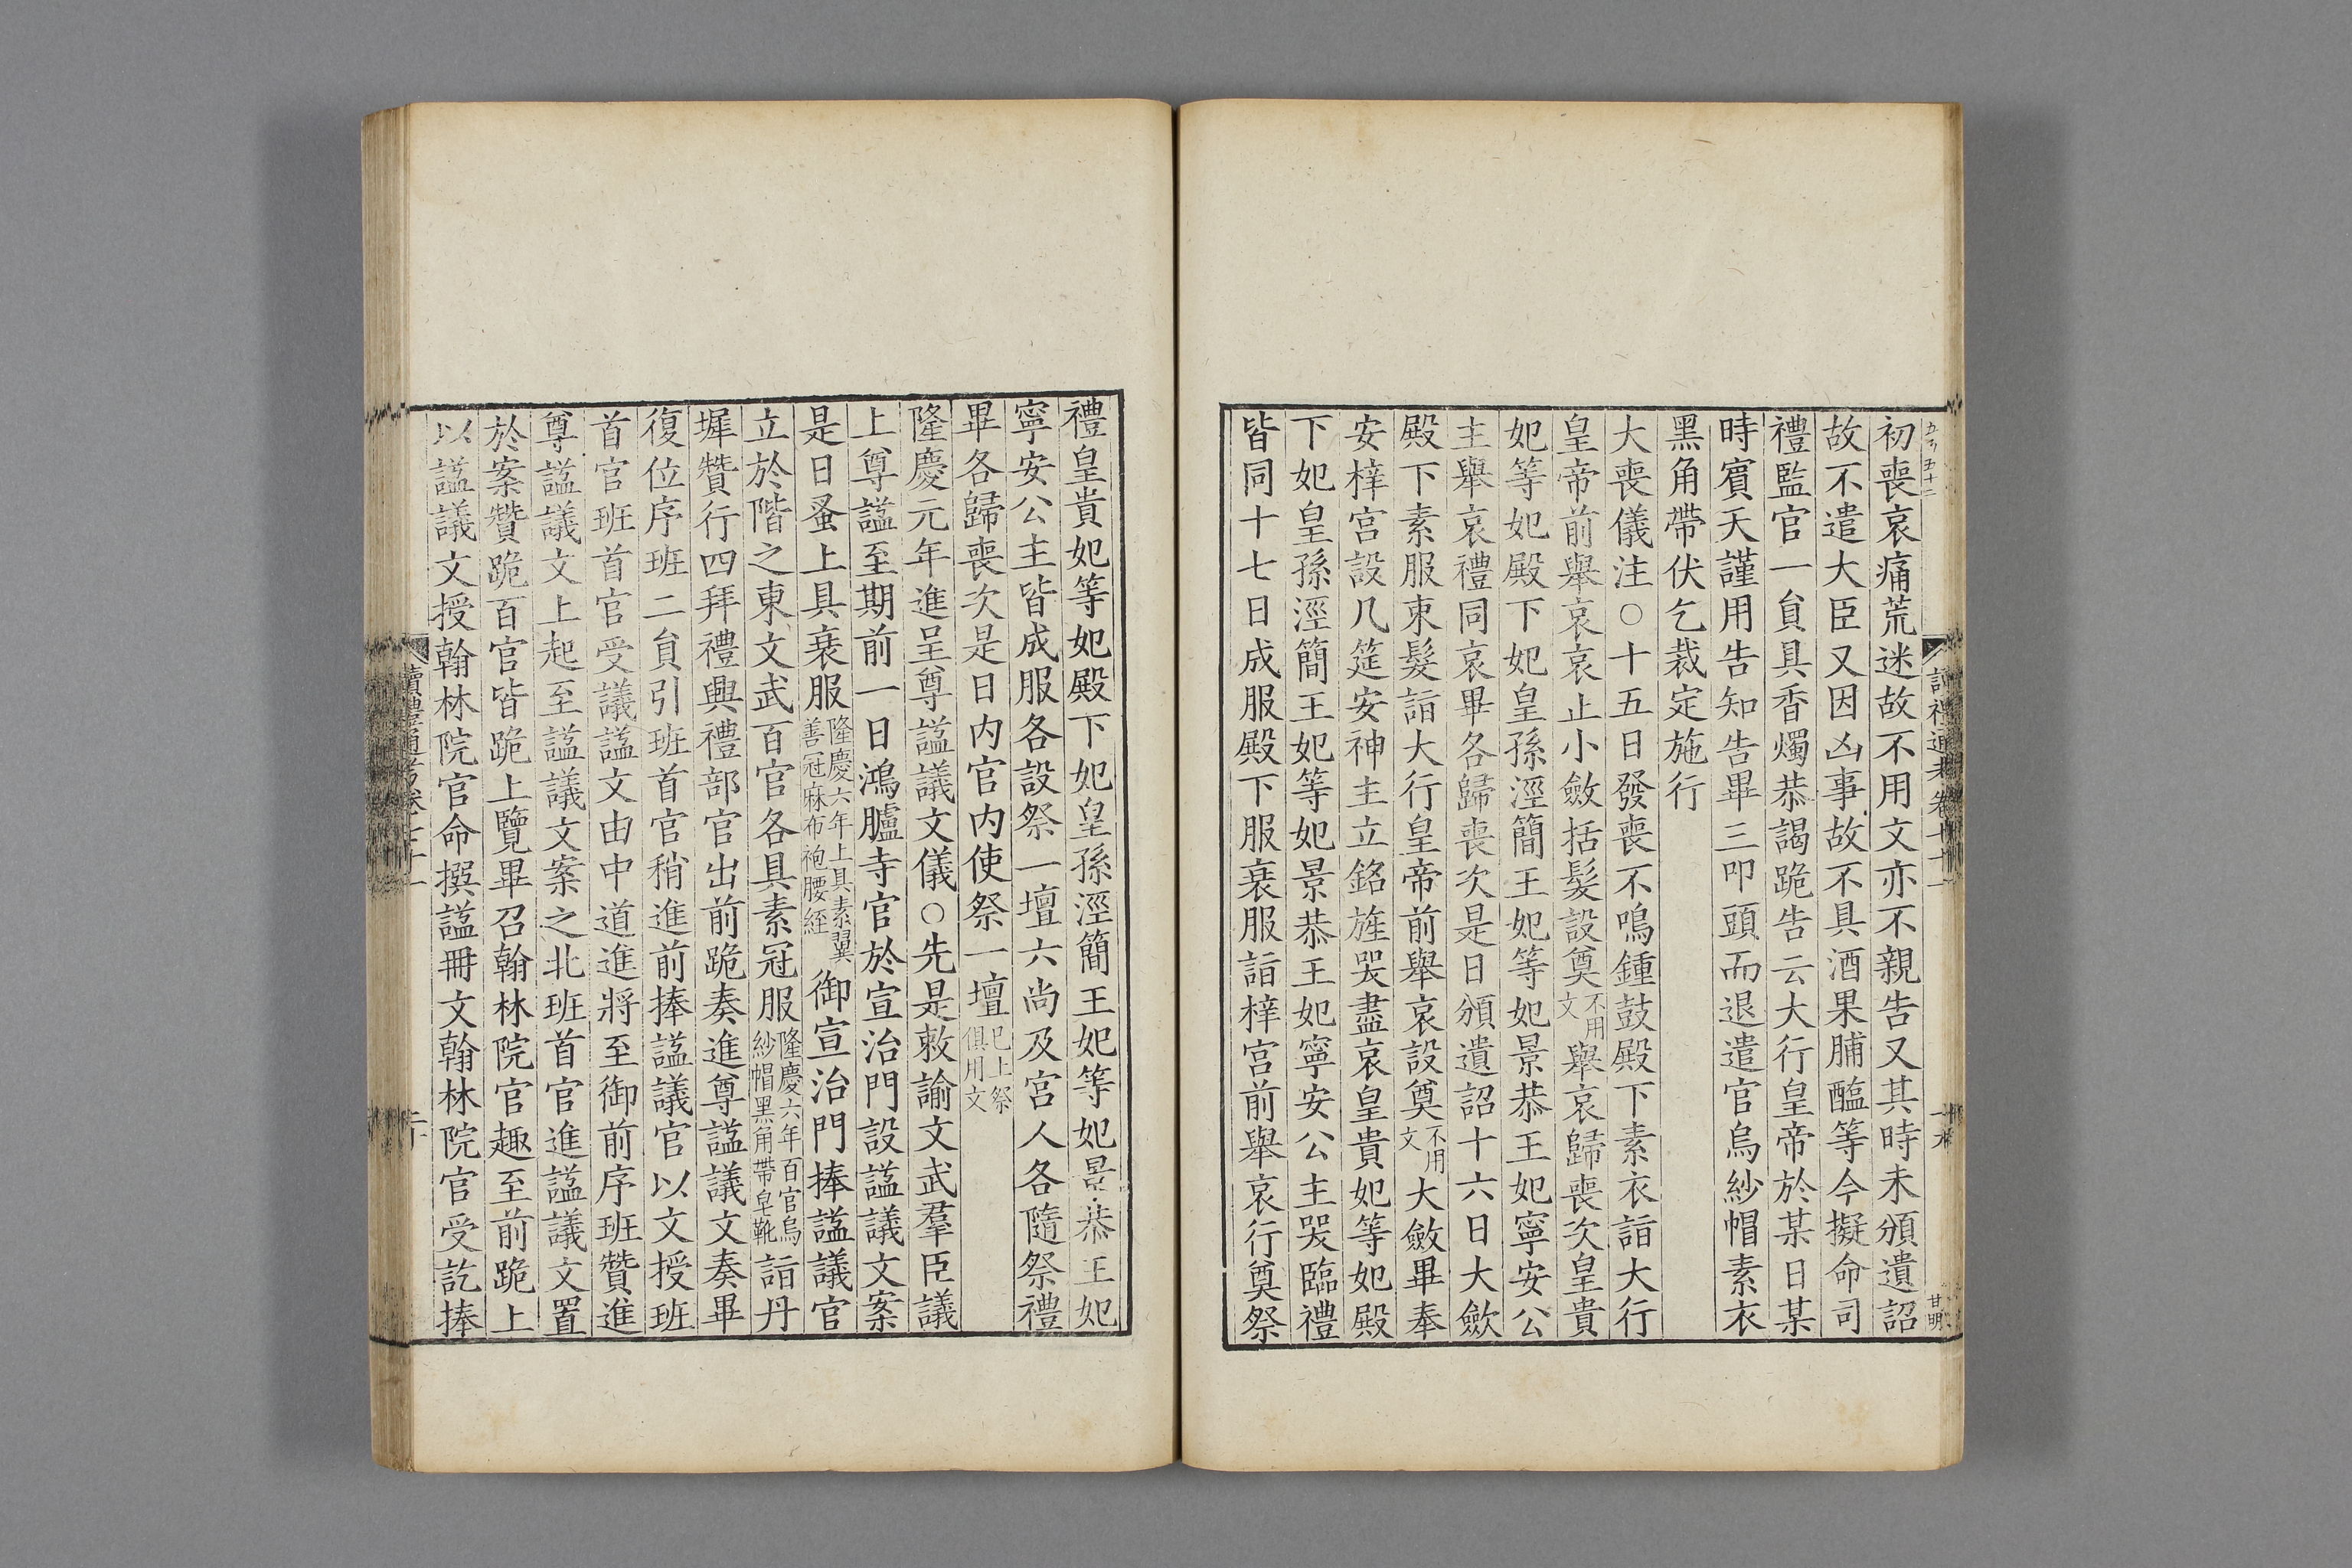 初喪哀痛荒迷故不用文亦不親告又其時未頒遺詔
故不遣大臣又因凶事故不具酒果脯醢等今擬命司
禮監官一員具香燭恭謁跪告云大行皇帝於某日某
時賔天謹用告知告畢三叩頭而退遣官烏紗帽素衣
黑角帶伏乞裁定施行
大喪儀注○十五日發喪不鳴鍾鼓殿下素衣詣大行
皇帝前舉哀哀止小斂括髮設奠不用文舉哀歸喪次皇貴
妃等妃殿下妃皇孫涇簡王妃等妃景恭王妃寧安公
主舉哀禮同哀畢各歸喪次是日頒遺詔十六日大歛
殿下素服束髮詣大行皇帝前舉哀設奠不用文大斂畢奉
安梓宫設几筵安神主立銘旌哭盡哀皇貴妃等妃殿
下妃皇孫涇簡王妃等妃景恭王妃寧安公主哭臨禮
皆同十七日成服殿下服衰服詣梓宫前舉哀行奠祭
禮皇貴妃等妃殿下妃皇孫涇簡王妃等妃景恭王妃
寧安公主皆成服各設祭一壇六尚及宫人各隨祭禮
畢各歸喪次是日内官内使祭一壇已上祭俱用文
隆慶元年進呈尊謚議文儀○先是敕諭文武羣臣議
上尊謚至期前一日鴻臚寺官於宣治門設謚議文案
是日蚤上具衰服隆慶六年上具素翼善冠麻布袍腰絰御宣治門捧謚議官
立於階之東文武百官各具素冠服隆慶六年百官烏紗帽黑角帶皁靴詣丹
墀贊行四拜禮興禮部官出前跪奏進尊謚議文奏畢
復位序班二員引班首官稍進前捧謚議官以文授班
首官班首官受議謚文由中道進將至御前序班贊進
尊謚議文上起至謚議文案之北班首官進謚議文置
於案贊跪百官皆跪上覽畢召翰林院官趣至前跪上
以謚議文授翰林院官命撰謚冊文翰林院官受訖捧